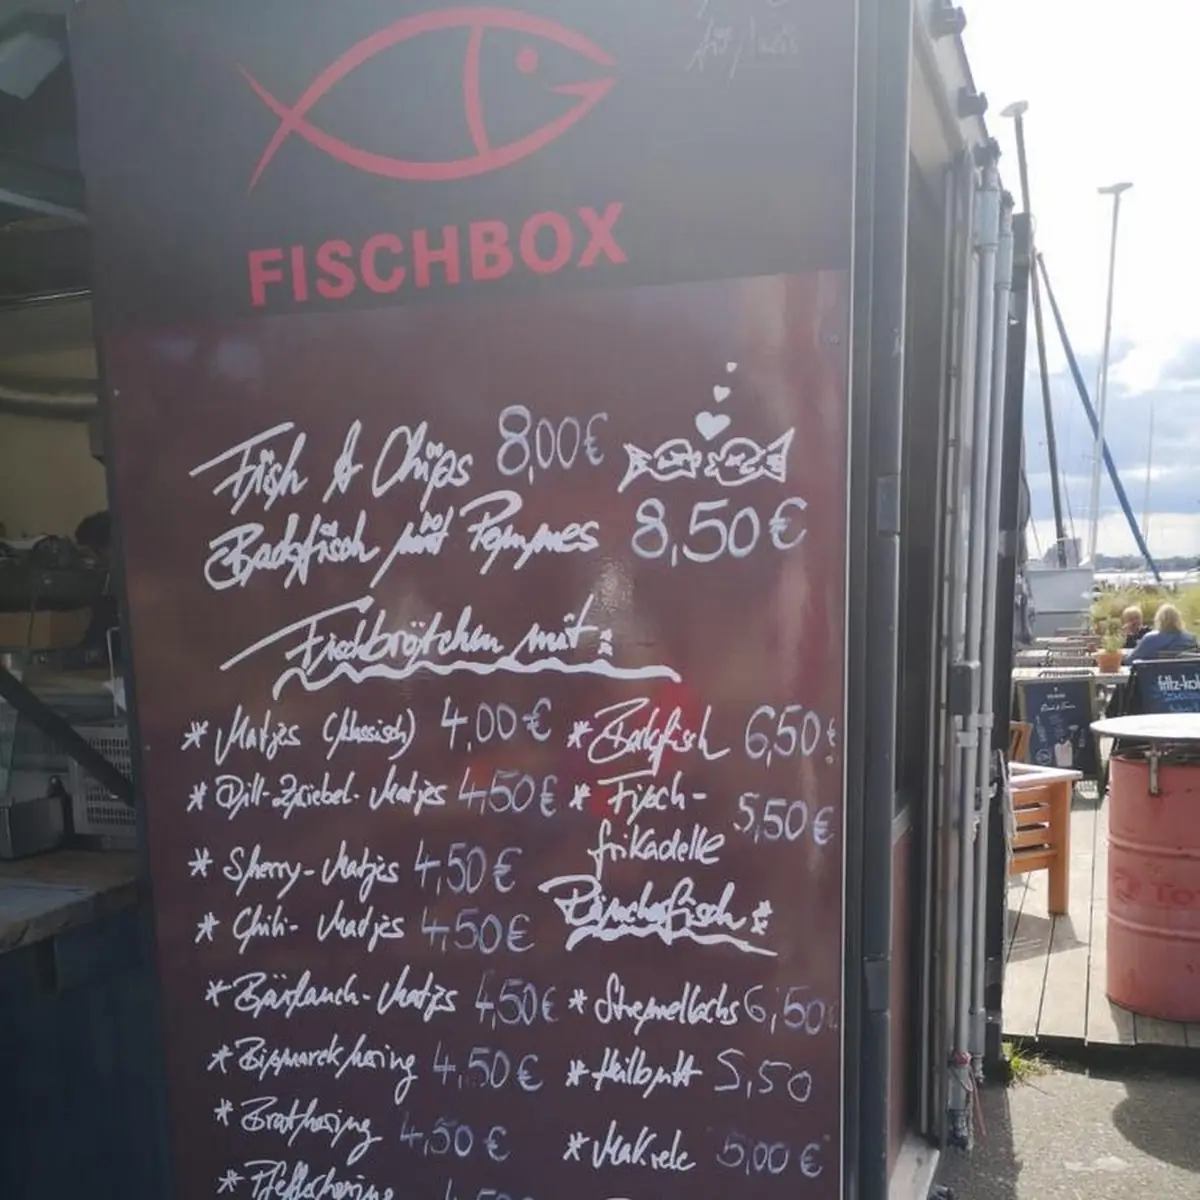 FISCHBOX
Fish & Chips 8,00€
Backfisch mit Pommes 8,50€
Fischbrötchen mit:
* Matjes (klassisch) 4,00€
* Dill-Zwiebel-Matjes 4,50€
* Sherry-Matjes 4,50€
* Chili-Matjes 4,50€
* Bärlauch-Matjes 4,50€
* Bismarckhering 4,50€
* Brathering 4,50€
* Pfefferhering 4,50
* Backfisch 6,50€
* Fisch-
frikadelle 5,50€
Räucherfisch:
* Stremellachs 6,50
* Heilbutt 5,50
* Makrele 5,00€
fritz-kol